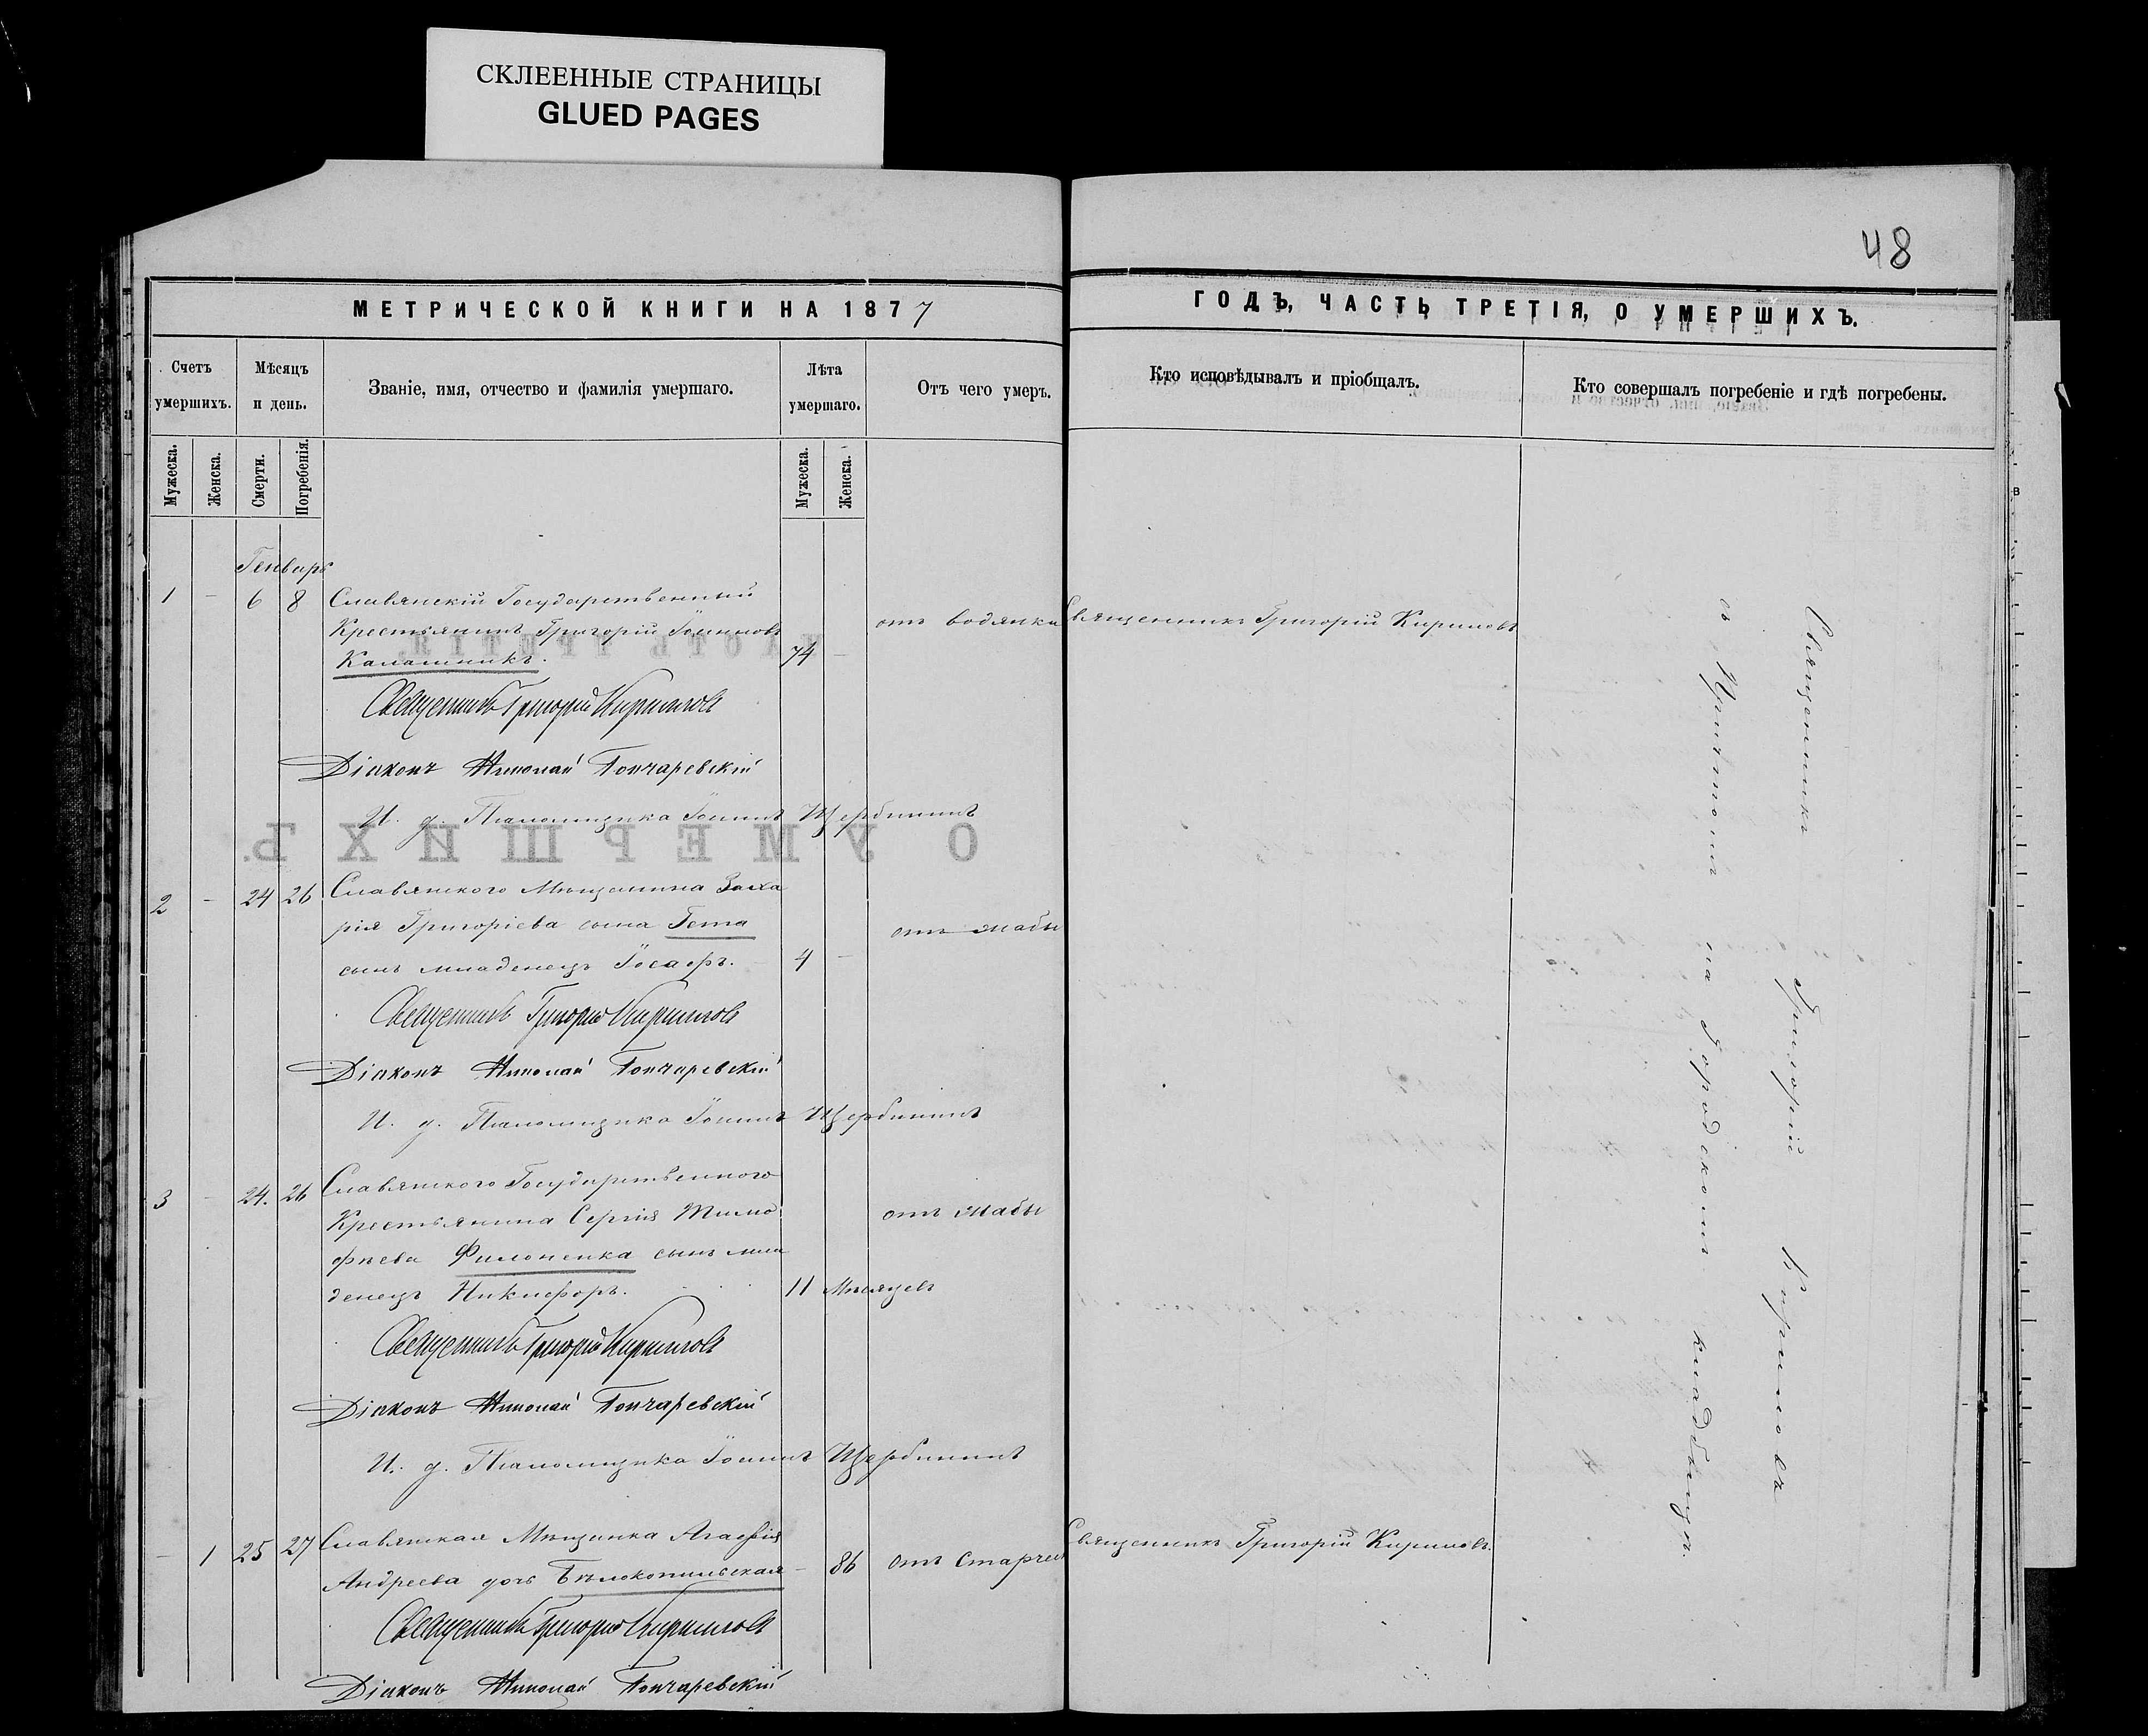 СКЛЕЕННЫЕ СТРАНИЦЫ
GLUED PAGES
48
МЕТРИЧЕСКОЙ КНИГИ НА 1877
ГОДЪ, ЧАСТЬ ТРЕТІЯ, О УМЕРШИХЪ.
Счетъ умершихъ.
Мѣсяцъ и день.
Званіе, имя, отчество и фамилія умершаго.
Лѣта умершаго.
Отъ чего умеръ.
Кто исповѣдывалъ и пріобщалъ.
Кто совершалъ погребеніе и гдѣ погребены.
Мужеска.
Женска.
Смерти.
Погребенія.
Мужеска.
Женска.
Генварь
1 - 6 8 Славянскій Государственный
Крестьянинъ Григорій Іоанновъ
Калашникъ. 74 -
отъ водянки
Священникъ Григорій Кириловъ
Священникъ Григорій Кирилловъ
Діаконъ Николай Гончаревскій
И. д. Псаломщика Іоаннъ Щербининъ
2 - 24 26 Славянского Мѣщанина Заха
рія Григоріева сына Гета
сынъ младенецъ Іосафъ. 4 -
отъ жабы
Священникъ Григорій Кирилловъ
Діаконъ Николай Гончаревскій
И. д. Псаломщика Іоаннъ Щербининъ
3 - 24. 26 Славянского Государственного
Крестьянина Сергія Тимо
фѣева Филоненка сынъ мла
денецъ Никифоръ. 11 Мѣсяцевъ
отъ жабы
Священникъ Григорій Кирилловъ
Діаконъ Николай Гончаревскій
И. д. Псаломщика Іоаннъ Щербининъ
- 1 25 27 Славянская Мѣщанка Агафія
Андреева дочь Бѣлокопильская - 86
отъ Старчес
Священникъ Григорій Кириловъ.
Священникъ Григорій Кирилловъ
Діаконъ Николай Гончаревскій
Священникъ Григорій Кириловъ
на Городскомъ кладбищѣ.